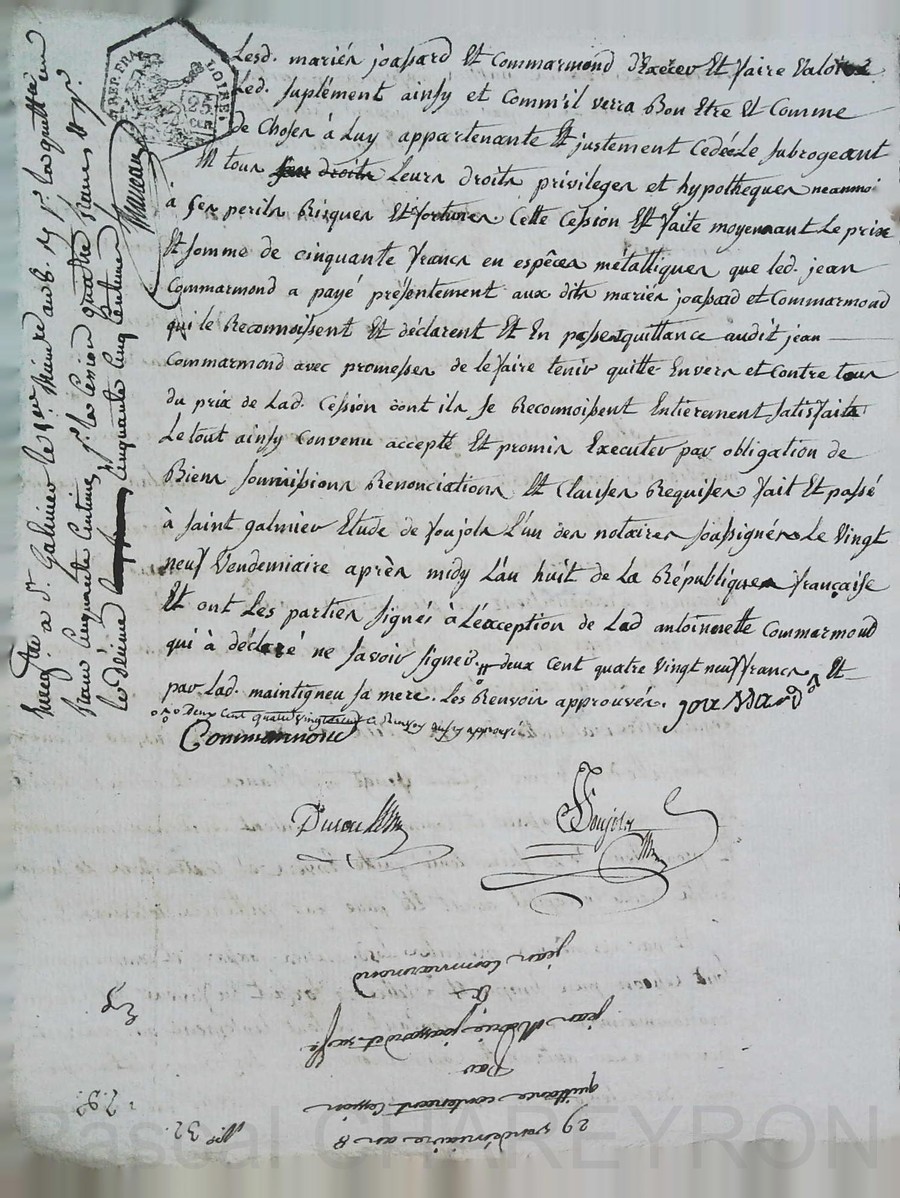 Lesd. mariés joassard Et Commarmond d'Exercer Et faire Valoir
Led. suplément ainsy et Comm'il verra Bon Etre Et Comme
de Choses à Luy appartenante Et justement Cedée Le subrogeant
En tous ses droits Leurs droits privileges et hypotheques neanmoi
à ses perils Risques Et fortunes Cette Cession Est faite moyenant Le prix
Et somme de cinquante francs en espèces métalliques que led. jean
Commarmond a payé présentement aux dits mariés joassard et Commarmond
qui le Reconnoissent Et déclarent Et En passent quittance audit jean
Commarmond avec promesses de le faire tenir quitte Envers et Contre tous
du prix de Lad. Cession dont ils se Reconnoissent Entièrement satisfaits
Le tout ainsy Convenu accepté Et promis Executer par obligation de
Biens soumissions Renonciations Et Clauses Requises fait Et passé
à saint galmier Etude de foujols L'un des notaires soussignés Le Vingt
neuf Vendemiaire après midy L'an huit de La République française
Et ont Les parties signés à L'exception de Lad antoinette Commarmond
qui à déclaré ne savoir signer deux Cent quatre Vingt neuf francs Et
par Lad. maintigneu sa mere. Les Renvois approuvés. jouassard
Deux Cent quatre vingt Renvoy aussy approuvé
Commarmond
foujols
Enreg. à St. Galmier le Br. an 8.
francs Cinquante Centimes pr. la Cession quatre francs
le Décime Cinquante Cinq Centimes
REP. FRA.
LOIRE
25
CEN
29 vendemiaire an 8
quittance contenant Cession
Par
jean Marie joassard et sa fe
Et
jean Commarmond
N° 32.
Pascal CHAREYRON